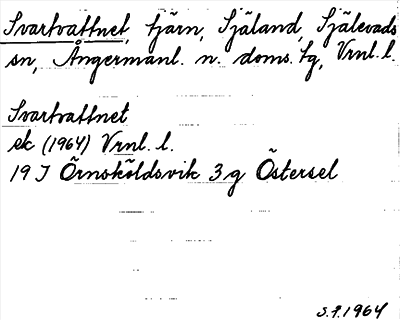 Svartvattnet, tjärn, Själand, Själevads
sn, Ångermanl. n. doms. tg, Vrnl. l.
Svartvattnet
ek (1964) Vrnl. l.
19 J Örnsköldsvik 3 g Östersel
S.F. 1964